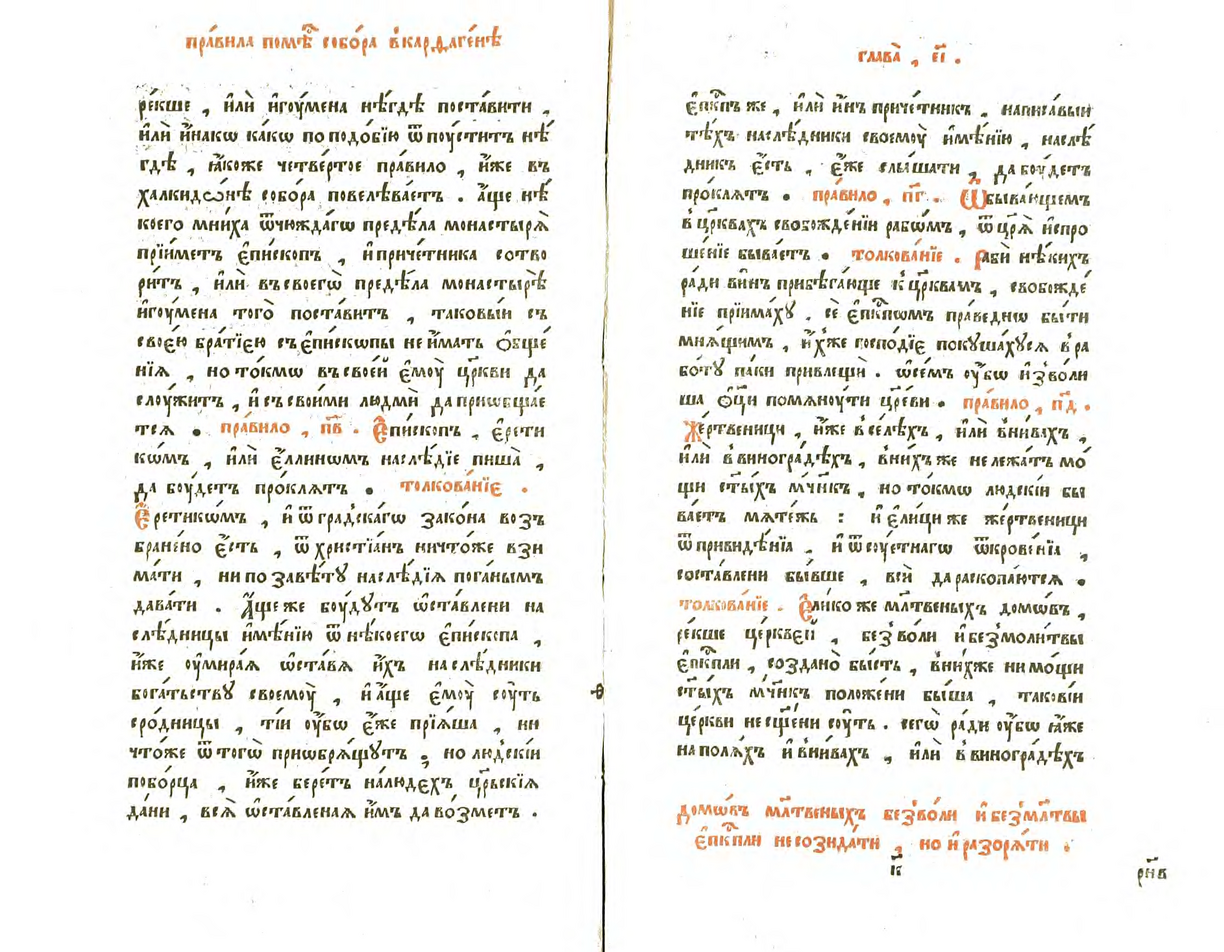 пра́вила помѣ́с собо́ра в̾карѳаге́нѣ
ре́кше , и҆лѝ и҆гоу́мена нѣ́гдѣ поста́вити ,
и҆лѝ и҆́накѡ ка́кѡ по подо́бїю ѿпоу́ститъ нѣ́
гдѣ , ꙗ҆́коже четве́ртое пра́вило , и҆́же въ
халкидо́нѣ собо́ра повелѣва́етъ . а҆́ще нѣ́
коего мни́ха ѿчю́ждагѡ предѣ́ла монастырѧ̀
прїи́метъ є҆пи́скопъ , и҆ приче́тника сотво
ри́тъ , и҆лѝ въ своегѡ̀ предѣ́ла монастырѣ̀
и҆гоу́мена того̀ поста́витъ , таковы́и съ
свое́ю бра́тїею съ є҆пи́скопы не и҆́мать ѻ҆́бще
нїѧ , но то́кмѡ въ свое́й є҆моу̀ цр҃кви да
слоу́житъ , и҆ съ свои́ми людмѝ да приѡбща́е
тсѧ . пра́вило , п҃в . Є҆пи́скопъ , є҆рети
кѡ́мъ , и҆лѝ є҆́ллинѡмъ наслѣ́дїе пиша̀ ,
да боу́детъ про́клѧтъ . толкова́нїе .
Є҆ретикѡ́мъ , и҆ ѿ гра́дскагѡ зако́на возъ
бране́но є҆́сть , ѿ христїа́нъ ничто́же взи
ма́ти , ни по завѣ́тꙋ наслѣ́дїѧ пога́нымъ
дава́ти . А҆́ще же боу́дꙋтъ ѡ҆ста́влени на
слѣ́дницы и҆мѣ́нїю ѿ нѣ́коегѡ є҆пи́скопа ,
и҆́же оу҆мира́ѧ ѡ҆ста́вѧ и҆́хъ наслѣ́дники
бога́тьствꙋ своемоу̀ , и҆ а҆́ще є҆моу̀ соу́ть
сро́дницы , ті́и оу҆́бѡ є҆́же прїѧ́ша , ни
что́же ѿ того̀ приѡбрѧ́щꙋтъ , но людскі́и
побо́рца , и҆́же бере́тъ на́людехъ цр҃ьскїѧ
да́ни , всѧ̀ ѡ҆ста́вленаѧ и҆́мъ да во́зметъ .
глава̀ , є҃і .
є҆пкⷭ҇пъ же , и҆лѝ и҆́нъ приче́тникъ , написа́выи
тѣ́хъ наслѣ́дники своемоу̀ и҆мѣ́нїю , наслѣ́
дникъ є҆́сть , є҆́же слы́шати , да боу́детъ
про́клѧтъ . пра́вило , п҃г . Ѡ҆ быва́ющемъ
в̾ цр҃квахъ свобожде́нїи рабѡ́мъ , ѿ цр҃ѧ̀ и҆спро
ше́нїе быва́етъ . толкова́нїе . Рабѝ нѣ́кихъ
ради ви́нъ прибѣга́юще к̾ цр҃квамъ , свобожде́
нїе прїима́хꙋ . се́ є҆пкⷭ҇пѡмъ пра́веднѡ бы́ти
мнѧ́щимъ , и҆́хже господі́е покуша́хусѧ в̾ ра
бо́тꙋ па́ки привлещѝ . ѡ҆ се́мъ оу҆́бѡ и҆зво́ли
ша ѻ҆ц҃и помѧноу́ти цр҃еви . пра́вило , п҃д .
Же́ртвеници , и҆́же в̾ се́лѣхъ , и҆лѝ в̾ни́вахъ ,
и҆лѝ в̾ виногра́дѣхъ , в̾ ни́хъ же не лежа́тъ мо́
щи ст҃ы́хъ мч҃нкъ , но то́кмѡ людскі́и бы
ва́етъ мѧте́жь : и҆ є҆ли́ци же же́ртвеници
ѿ привидѣ́нїа , и҆ ѿ соу́етнагѡ ѿкрове́нїа ,
соста́влени бы́вше , всѝ да раскопа́ютсѧ .
толкова́нїе . Є҆ли́ко же мл҃твеныхъ домѡ́въ ,
ре́кше це́рквей , без̾ во́ли и҆ без̾ моли́твы
є҆пкⷭ҇пли , со́здано̀ бы́сть , в̾ ни́хже ни мо́щи
ст҃ы́хъ мч҃нкъ положе́ни бы́ша , таковы́и
це́ркви не сщ҃е́ни соу́ть . сегѡ̀ ра́ди оу҆́бѡ ꙗ҆́же
на полѧ́хъ и҆ в̾ни́вахъ , и҆лѝ в̾ виногра́дѣхъ
домѡ́въ мл҃твеныхъ без̾ во́ли и҆ без̾ мл҃твы
є҆пкⷭ҇пли не созида́ти , но и҆ разорѧ́ти .
к҃
рн҃в